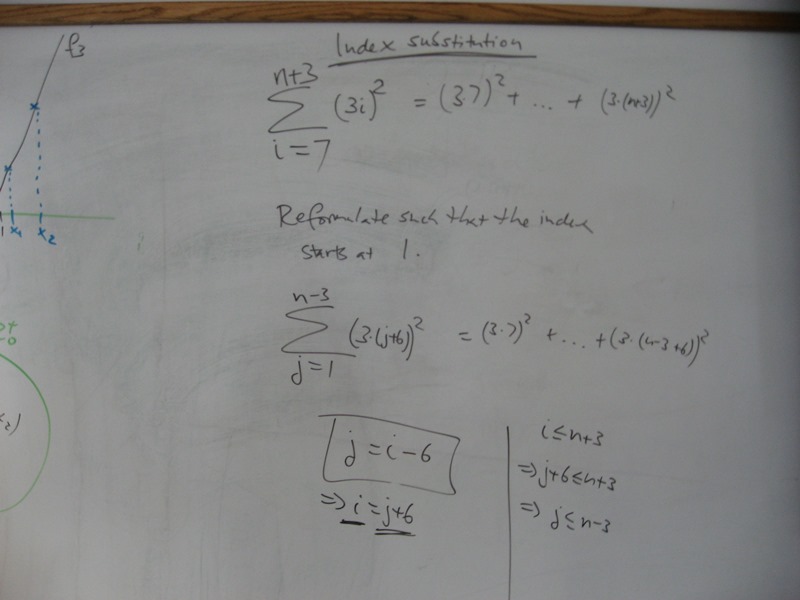 Index substitution
f₃
n+3
∑ (3i)² = (3·7)² + ... + (3·(n+3))²
i=7
x₁ x₂
Reformulate such that the index
starts at 1.
n-3
∑ (3·(j+6))² = (3·7)² + ... + (3·(n-3+6))²
j=1
j = i-6
⇒ i = j+6
i ≤ n+3
⇒ j+6 ≤ n+3
⇒ j ≤ n-3